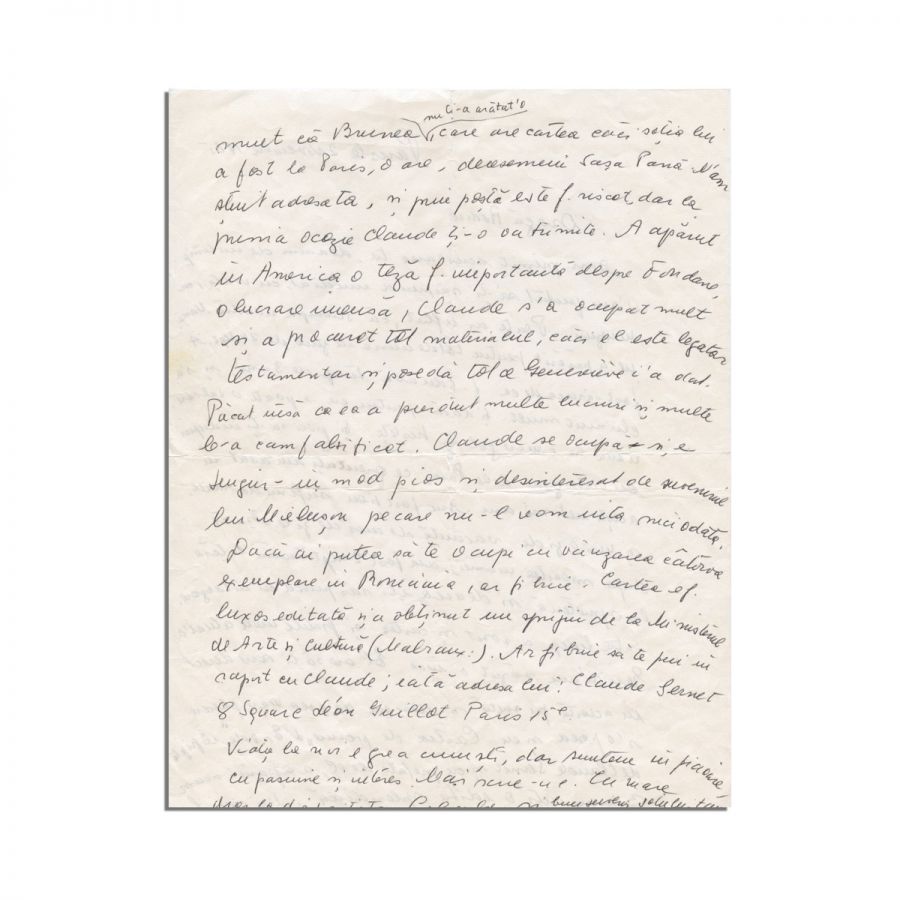 nu ți-a arătat'o
mult că Brunea, care are cartea căci soția lui
a fost la Paris, o are, deasemeni Sașa Pană. N'am
știut adresa ta, și prin poștă este f. riscat, dar la
prima ocazie Claude ți-o va trimite. A apărut
în America o teză f. importantă despre Fondane,
o lucrare imensă, Claude s'a ocupat mult
și a procurat tot materialul, căci el este legatar
testamentar și posedă tot ce Geneviève i'a dat.
Păcat însă că ea a pierdut multe lucruri și multe
le-a cam falsificat. Claude se ocupă - și, e
singur - în mod pios și desinteresat de suvenirul
lui Mielușon pe care nu-l vom uita niciodată.
Dacă ai putea să te ocupi cu vânzarea câtorva
exemplare în România, ar fi bine. Cartea e f.
luxos editată și a obținut un sprijin de la Ministerul
de Arte și Cultură (Malraux:). Ar fi bine să te pui în
raport cu Claude; iată adresa lui: Claude Sernet
8 Square Léon Guillot Paris 15e
Viața la noi e grea cum știi, dar suntem în picioare,
cu pasiune și interes. Mai scrie-ne. Cu mare